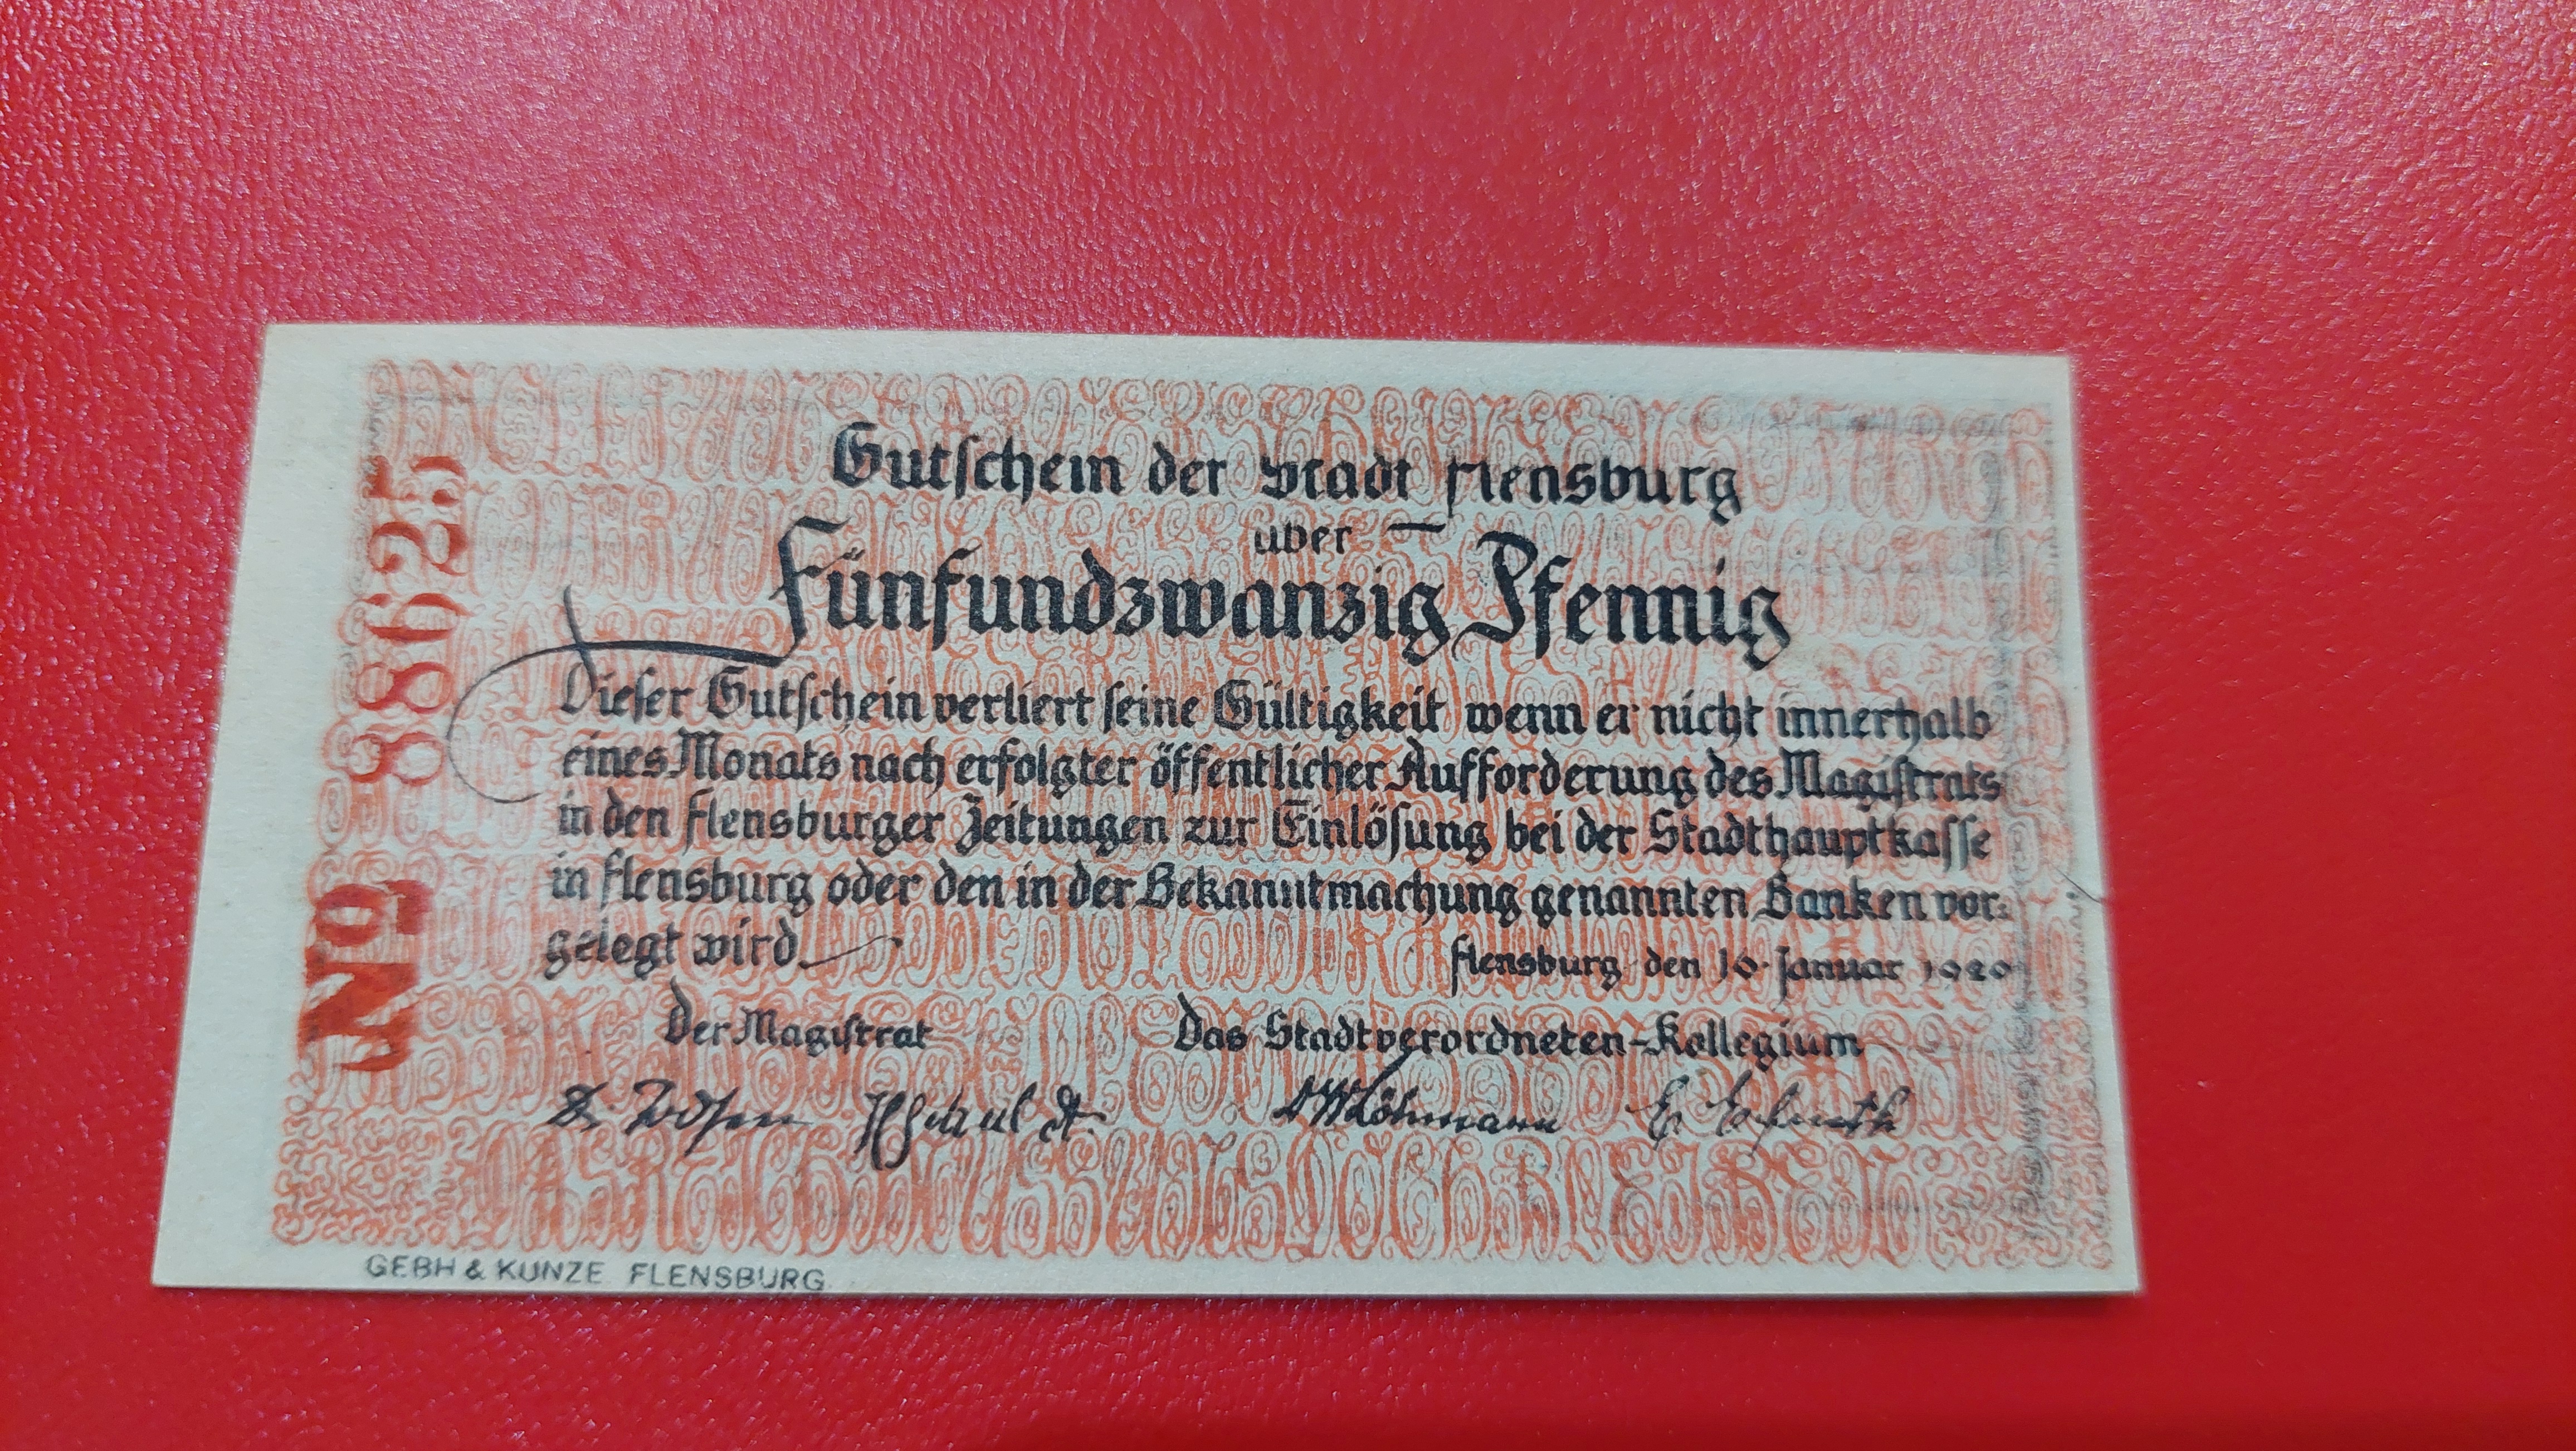 Gutschein der Stadt Flensburg
über
Fünfundzwanzig Pfennig
Dieser Gutschein verliert seine Gültigkeit wenn er nicht innerhalb
eines Monats nach erfolgter öffentlicher Aufforderung des Magistrats
in den Flensburger Zeitungen zur Einlösung bei der Stadthauptkasse
in Flensburg oder den in der Bekanntmachung genannten Banken vor=
gelegt wird
Flensburg den 10. Januar 1920
Der Magistrat
Das Stadtverordneten-Kollegium
Löhmann
№ 88625
GEBH & KUNZE FLENSBURG